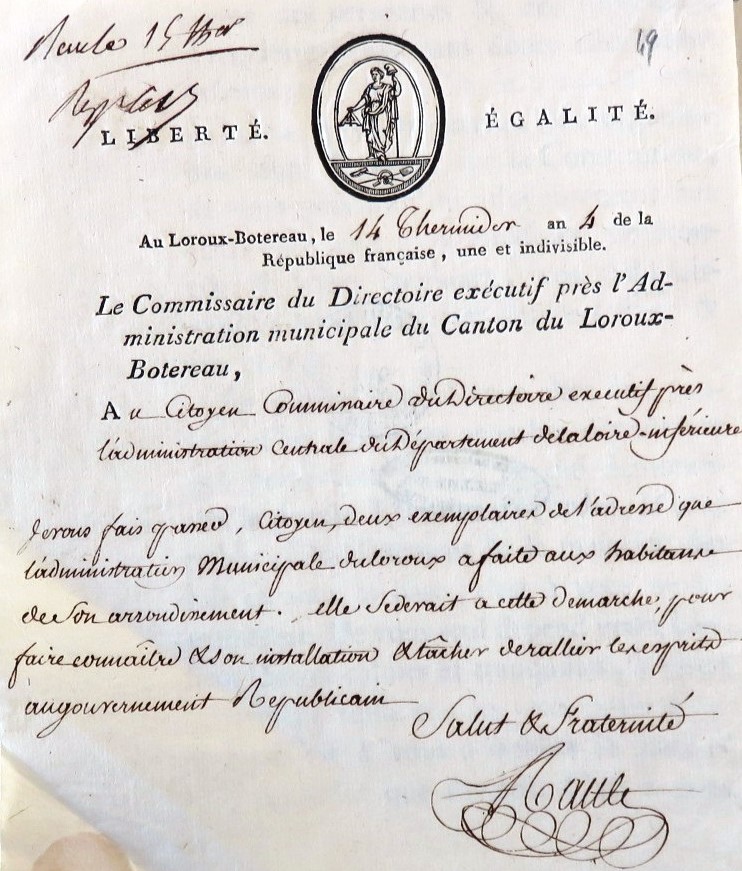 15 ther
49
LIBERTÉ. ÉGALITÉ.
Au Loroux-Botereau, le 14 Thermidor an 4 de la
République française, une et indivisible.
Le Commissaire du Directoire exécutif près l'Ad-
ministration municipale du Canton du Loroux-
Botereau,
Au Citoyen Commissaire du Directoire executif près
l'administration Centrale du Département de la loire-inférieure
Je vous fais passer, Citoyen, deux exemplaires de l'adresse que
l'administration Municipale du loroux a faite aux habitans
de son arrondissement. elle se devait a cette demarche, pour
faire connaître & son installation & tâcher de rallier les esprits
au gouvernement Republicain
Salut & Fraternité